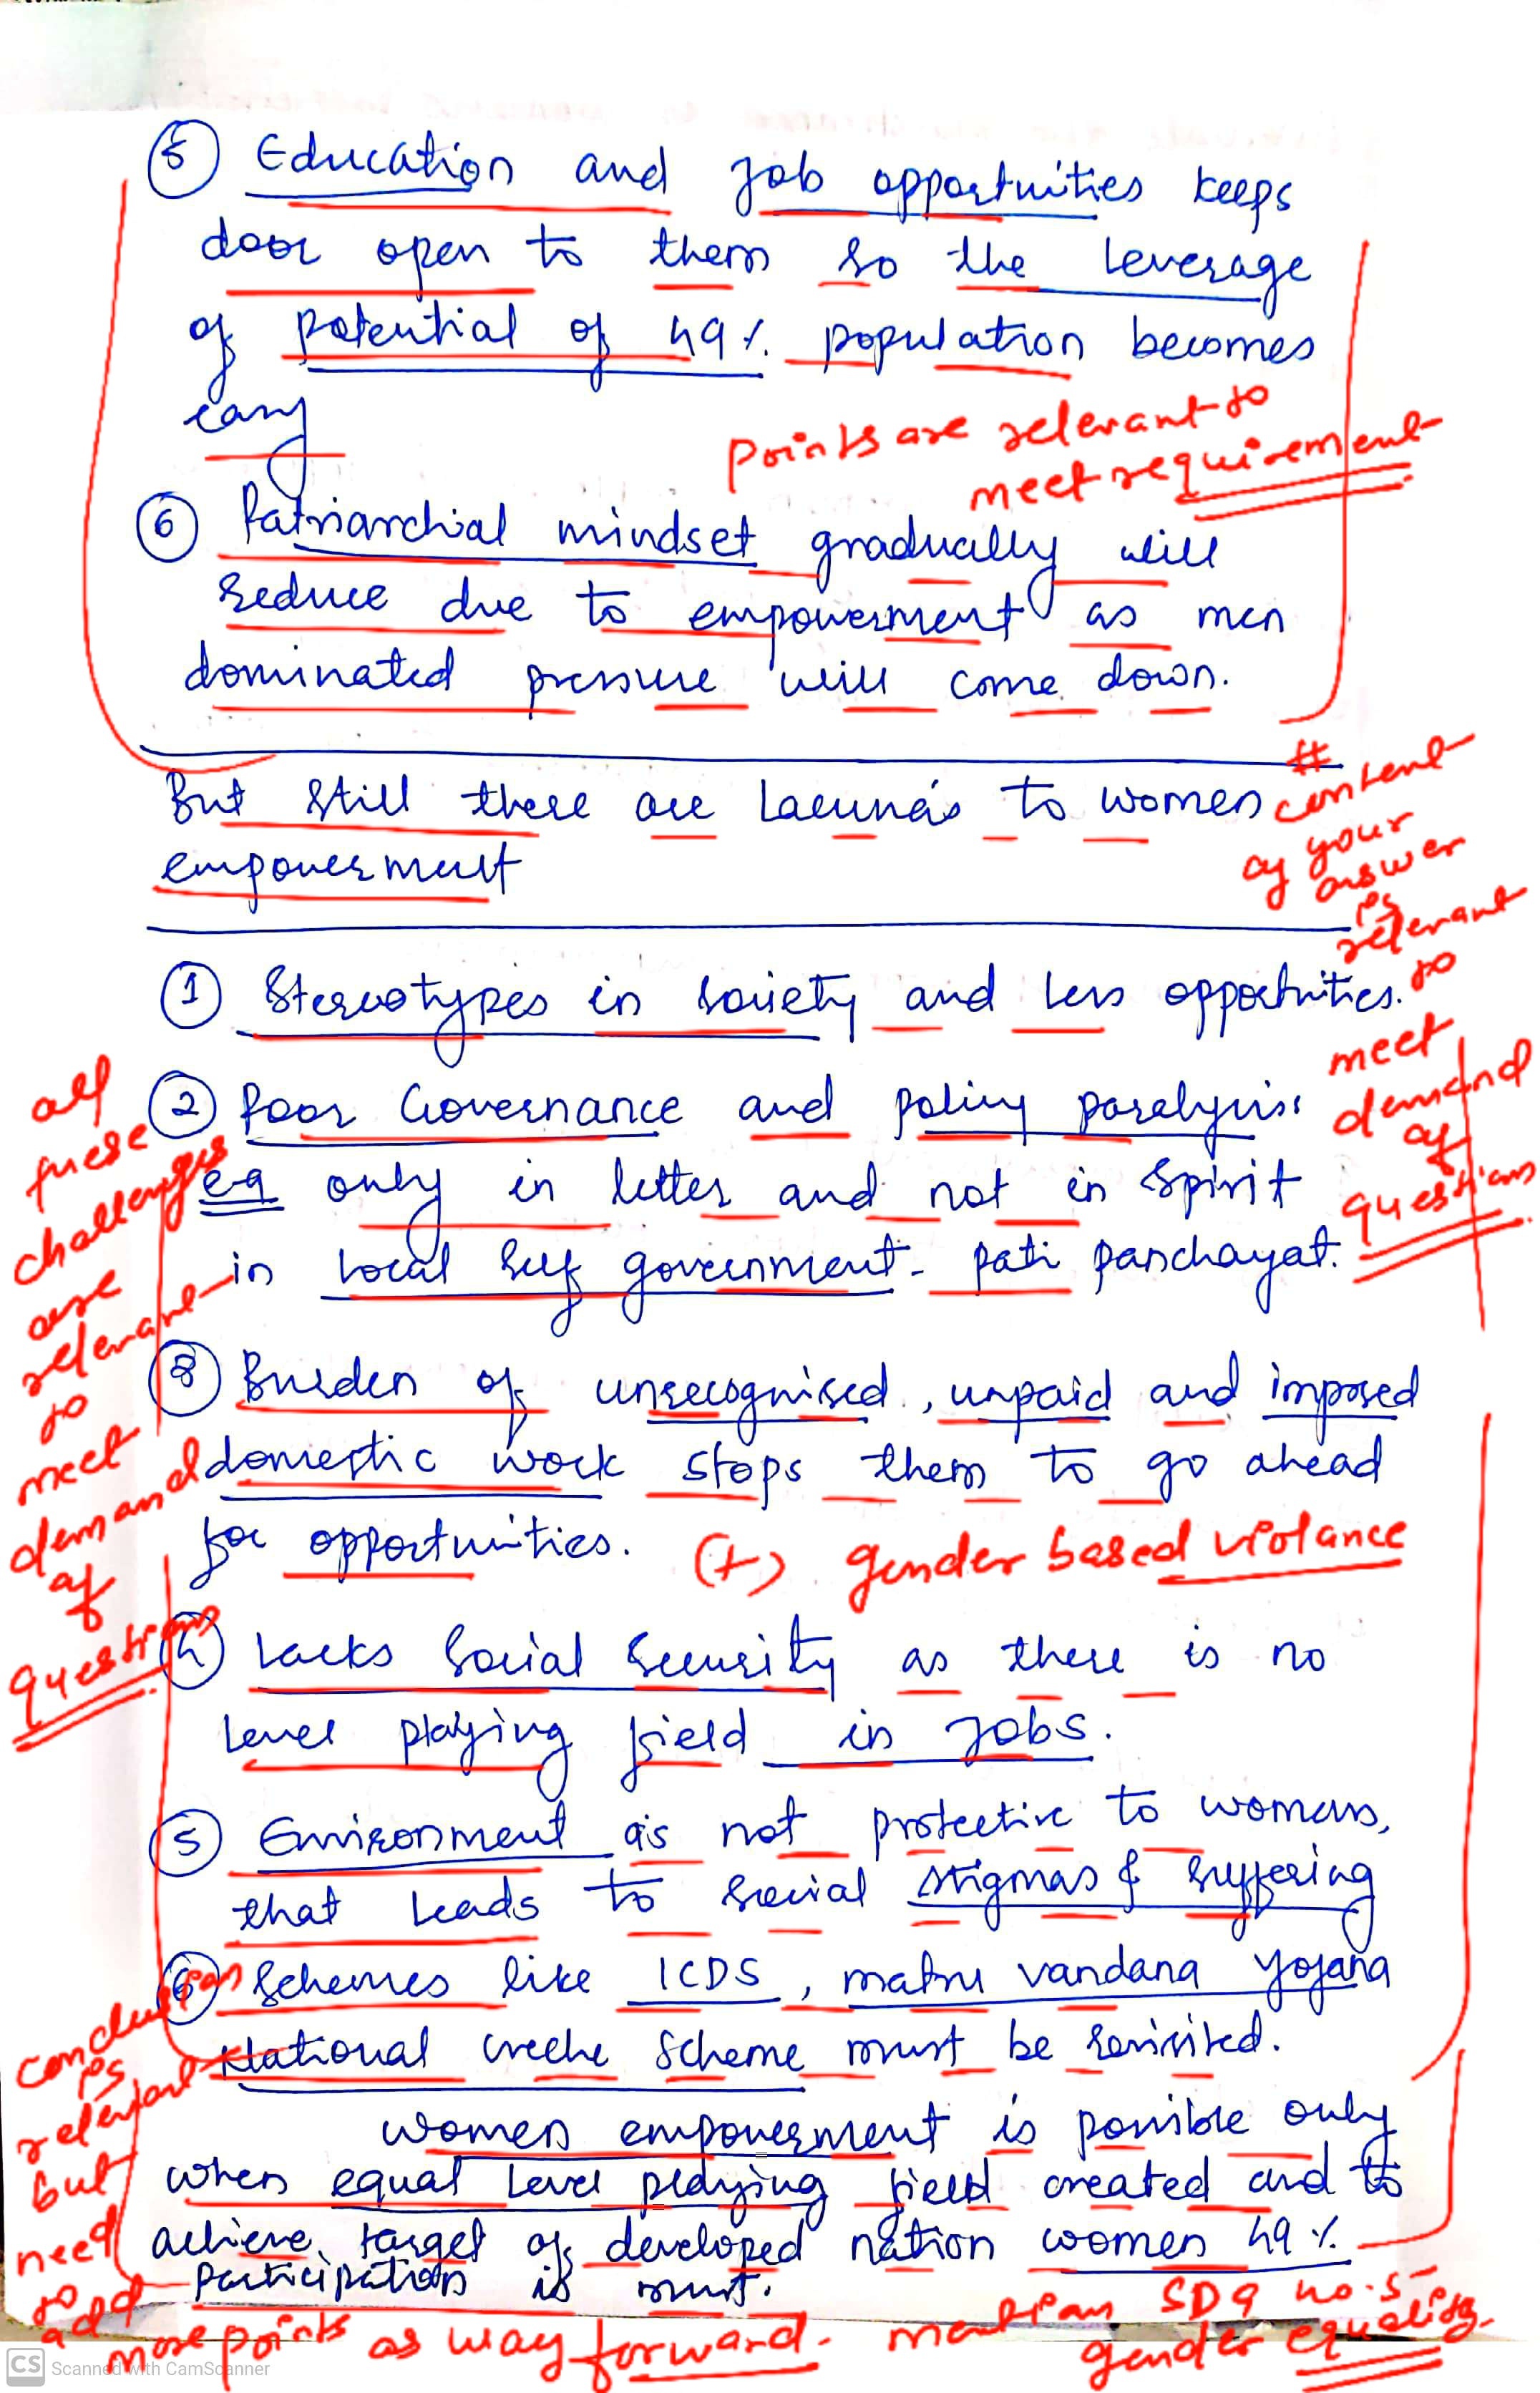 ⑤ Education and Job opportunities keeps
door open to them so the leverage
of potential of 49% population becomes
easy
points are relevant to
meet requirement
⑥ Patriarchial mindset gradually will
reduce due to empowerment as men
dominated pressure will come down.
But still there are Lacuna's to women
empowerment
# content
of your
answer
is
relevant
to
meet
demand
of
questions
① Stereotypes in society and less opportnities.
② Poor Governance and policy paralysis:
eg only in letter and not in spirit
in local self government - pati panchayat.
③ Burden of unrecognised, unpaid and imposed
domestic work stops them to go ahead
for opportunities.
(+) gender based violance
all
these
challenges
are
relevant
to
meet
demand
of
questions
④ Lacks Social Security as there is no
level playing field in Jobs.
⑤ Environment is not protective to womens,
that leads to social stigmas & suffering
⑥ Schemes like ICDS, matru vandana yojana
National creche scheme must be revisited.
women empowerment is possible only
when equal level playing field created and to
achieve target of developed nation women 49%
Participation is must.
conclusion
is
relevant
but
need
to
add
more points as way forward. mention SDG no.5
gender equality.
CS Scanned with CamScanner